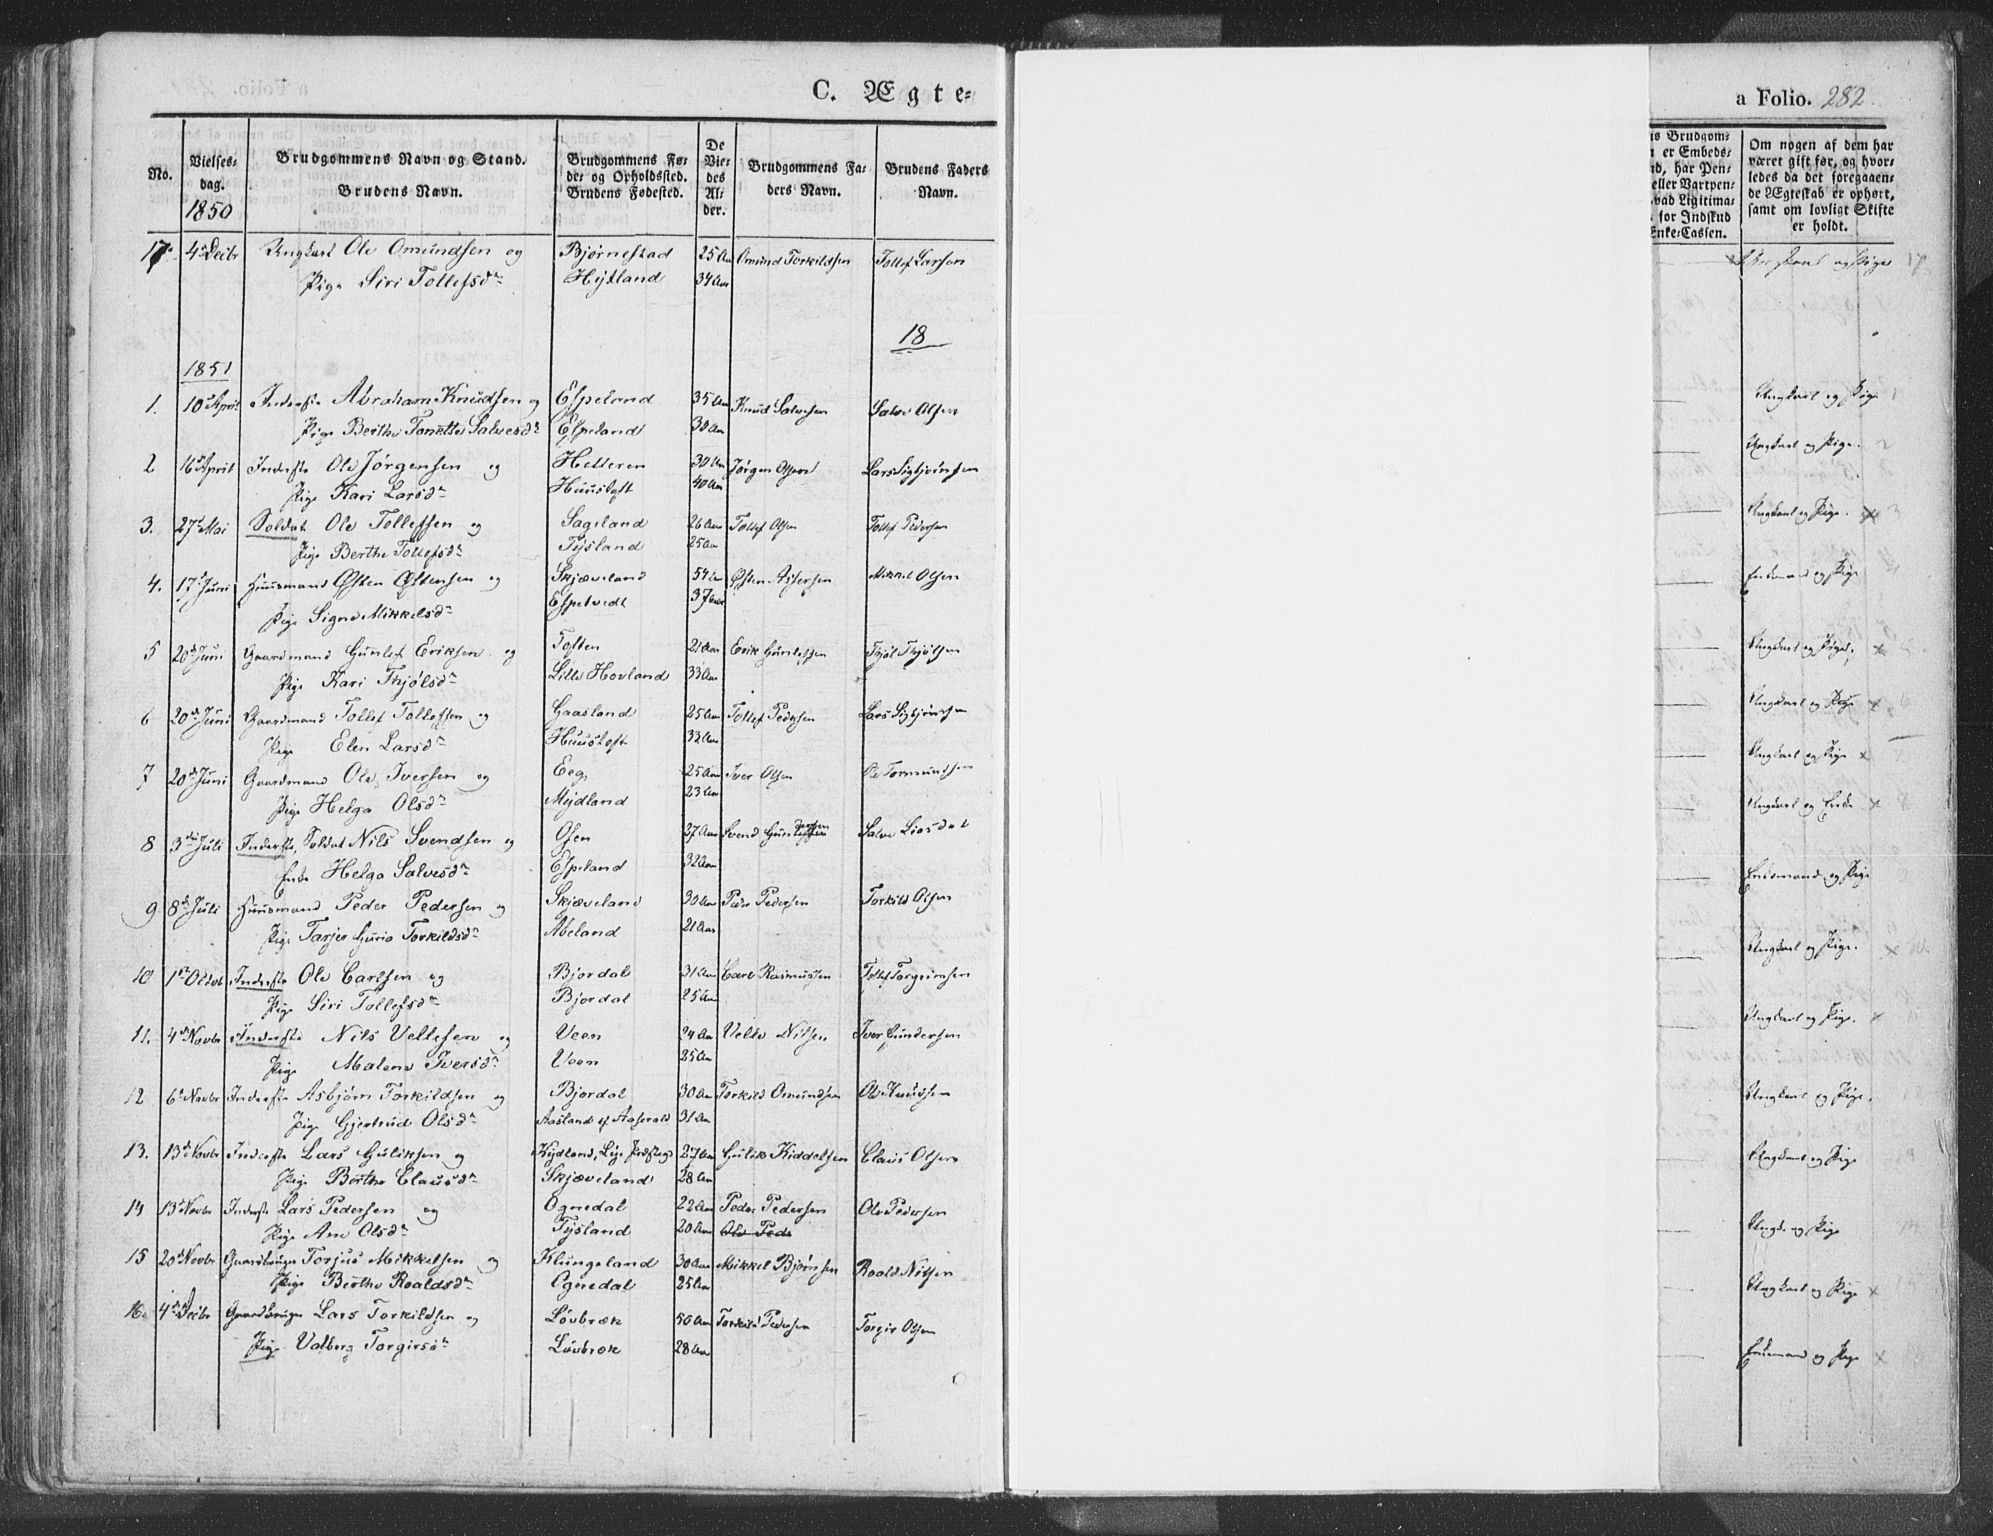 C. Ægte=
a Folio. 282
No.
Vielses= dag.
Brudgommens Navn og Stand. Brudens Navn.
Brudgommens Fø= de= og Opholdssted. Brudens Fødested.
De Vie= des Al= der.
Brudgommens Fa= ders Navn.
Brudens Faders Navn.
is Brudgom=
er Embeds=
nd, har Pen=
eller Vartpen=
vad Ligitima=
for Indskud
Enke=Cassen.
Om nogen af dem har
været gift før, og hvor=
ledes da det foregaaen=
de Ægteskab er ophørt,
samt om lovligt Skifte
er holdt.
1850
17 4 Decbr Ungkarl Ole Omundsen og Bjørnestad 25 Aar Omund Torkildsen Tollef Larsen Ungkarl og Pige 17
Pige Siri Tollefsdr Hytland 34 Aar
18
1851
1. 10 April Inderste Abraham Knudsen og Espeland 35 Aar Knud Salvesen Salve Olsen Ungkarl og Pige 1
Pige Berthe Tonette Salvesdr Espeland 38 Aar
2 16 April Inderste Ole Jørgensen og Helleren 30 Aar Jørgen Olsen Lars Sigbjørnsen Ungkarl og Pige. 2
Pige Kari Larsdr Huusloft 40 Aar
3. 27 Mai Soldat Ole Tollefsen og Sageland 26 Aar Tollef Olsen Tollef Pedersen Ungkarl og Pige. x
Pige Berthe Tollefsdr Tysland 25 Aar
4. 17 Juni Huusmand Østen Østensen og Skjæveland 54 Aar Østen Assersen Mikkel Olsen Enkemand og Pige
Pige Signe Mikkelsdr Espetvedt 37 Aar
5 20de Juni Gaardmand Gunlef Eriksen og Toften 21 Aar Erik Gunlefsen Thjøl Thjølsen Ungkarl og Pige. x
Pige Kari Thjølsdr Lille Hovland 33 Aar
6 20de Juni Gaardmand Tollef Tollefsen og Gaasland 25 Aar Tollef Pedersen Lars Sigbjørnsen Ungkarl og Pige x
Pige Elen Larsdr Huusloft 33 Aar
7 20de Juni Gaardmand Ole Iversen og Eeg 25 Aar Iver Olsen Ole Tormundsen Ungkarl og Pige x
Pige Helga Olsdr Mydland 23 Aar
8 3die Juli Inderste, Soldat Nils Svendsen og Osen 27 Aar Svend Gundersen Salve Liosdal Ungkarl og Enke x
Enke Helga Salvesdr Espeland 32 Aar
9 8de Juli Huusmand Peder Pedersen og Skjæveland 30 Aar Peder Pedersen Torkild Olsen Enkemand og Pige
Pige Tarjer Guria Torkildsdr Abeland 21 Aar
10 1ste Octob Inderste Ole Carlsen og Bjordal 31 Aar Carl Rasmussen Tollef Torgeirsen Ungkarl og Pige. x
Pige Siri Tollefsdr Bjordal 25 Aar
11. 4de Novbr Inderste Nils Vellesen og Veen 24 Aar Velle Nilsen Iver Gundersen Ungkarl og Pige. x
Pige Malene Iversdr Veen 25 Aar
12 6te Novbr Inderste Asbjørn Torkildsen og Bjordal 30 Aar Torkild Omundsen Ole Knudsen Ungkarl og Pige.
Pige Gjertrud Olsdr Aasland af Aaserald 31 Aar
13. 13de Novbr Inderste Lars Guliksen og Kydland, Lye Præstegj 27 Aar Gulik Kiddelsen Claus Olsen Ungkarl og Pige
Pige Berthe Clausdr Skjæveland 28 Aar
14 13de Novbr Inderste Lars Pedersen og Ognedal 22 Aar Peder Pedersen Ole Pedersen Ungk. og Pige
Pige Ane Olsdr Tysland 20 Aar Ole Peds
15 20de Novbr Gaardbruger Torjus Mikkelsen og Klungeland 30 Aar Mikkel Bjørnsen Roald Nilsen Ungkarl og Pige x
Pige Berthe Roaldsdr Ognedal 25 Aar
16. 4de Decbr Gaardbruger Lars Torkildsen og Løvbræk 50 Aar Torkild Pedersen Torgir Olsen Enkemand og Pige x
Pige Valborg Torgirsdr Løvbræk 28 Aar